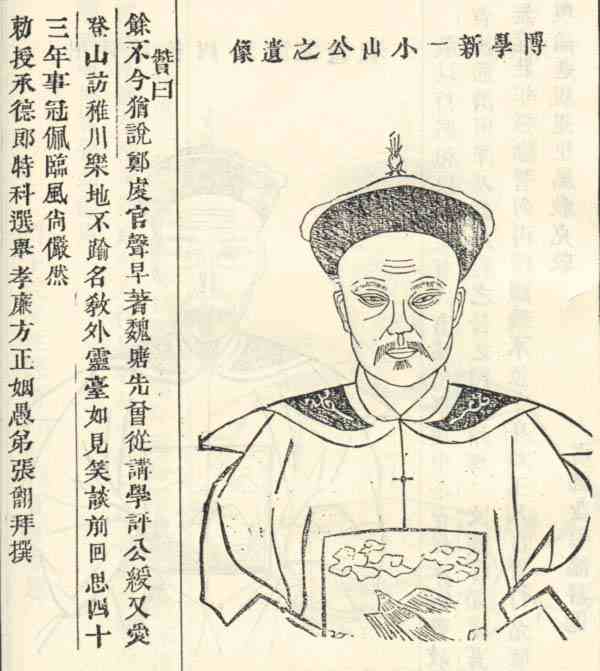 博學新一小山公之遺像
贊曰
餘不今猶說鄭虔官聲早著魏塘先曾從講學評公緩又愛
登山訪稚川樂地不踰名敎外靈臺如見笑談前回思四十
三年事冠佩臨風尙儼然
勅授承德郎特科選舉孝廉方正姻愚弟張拜撰